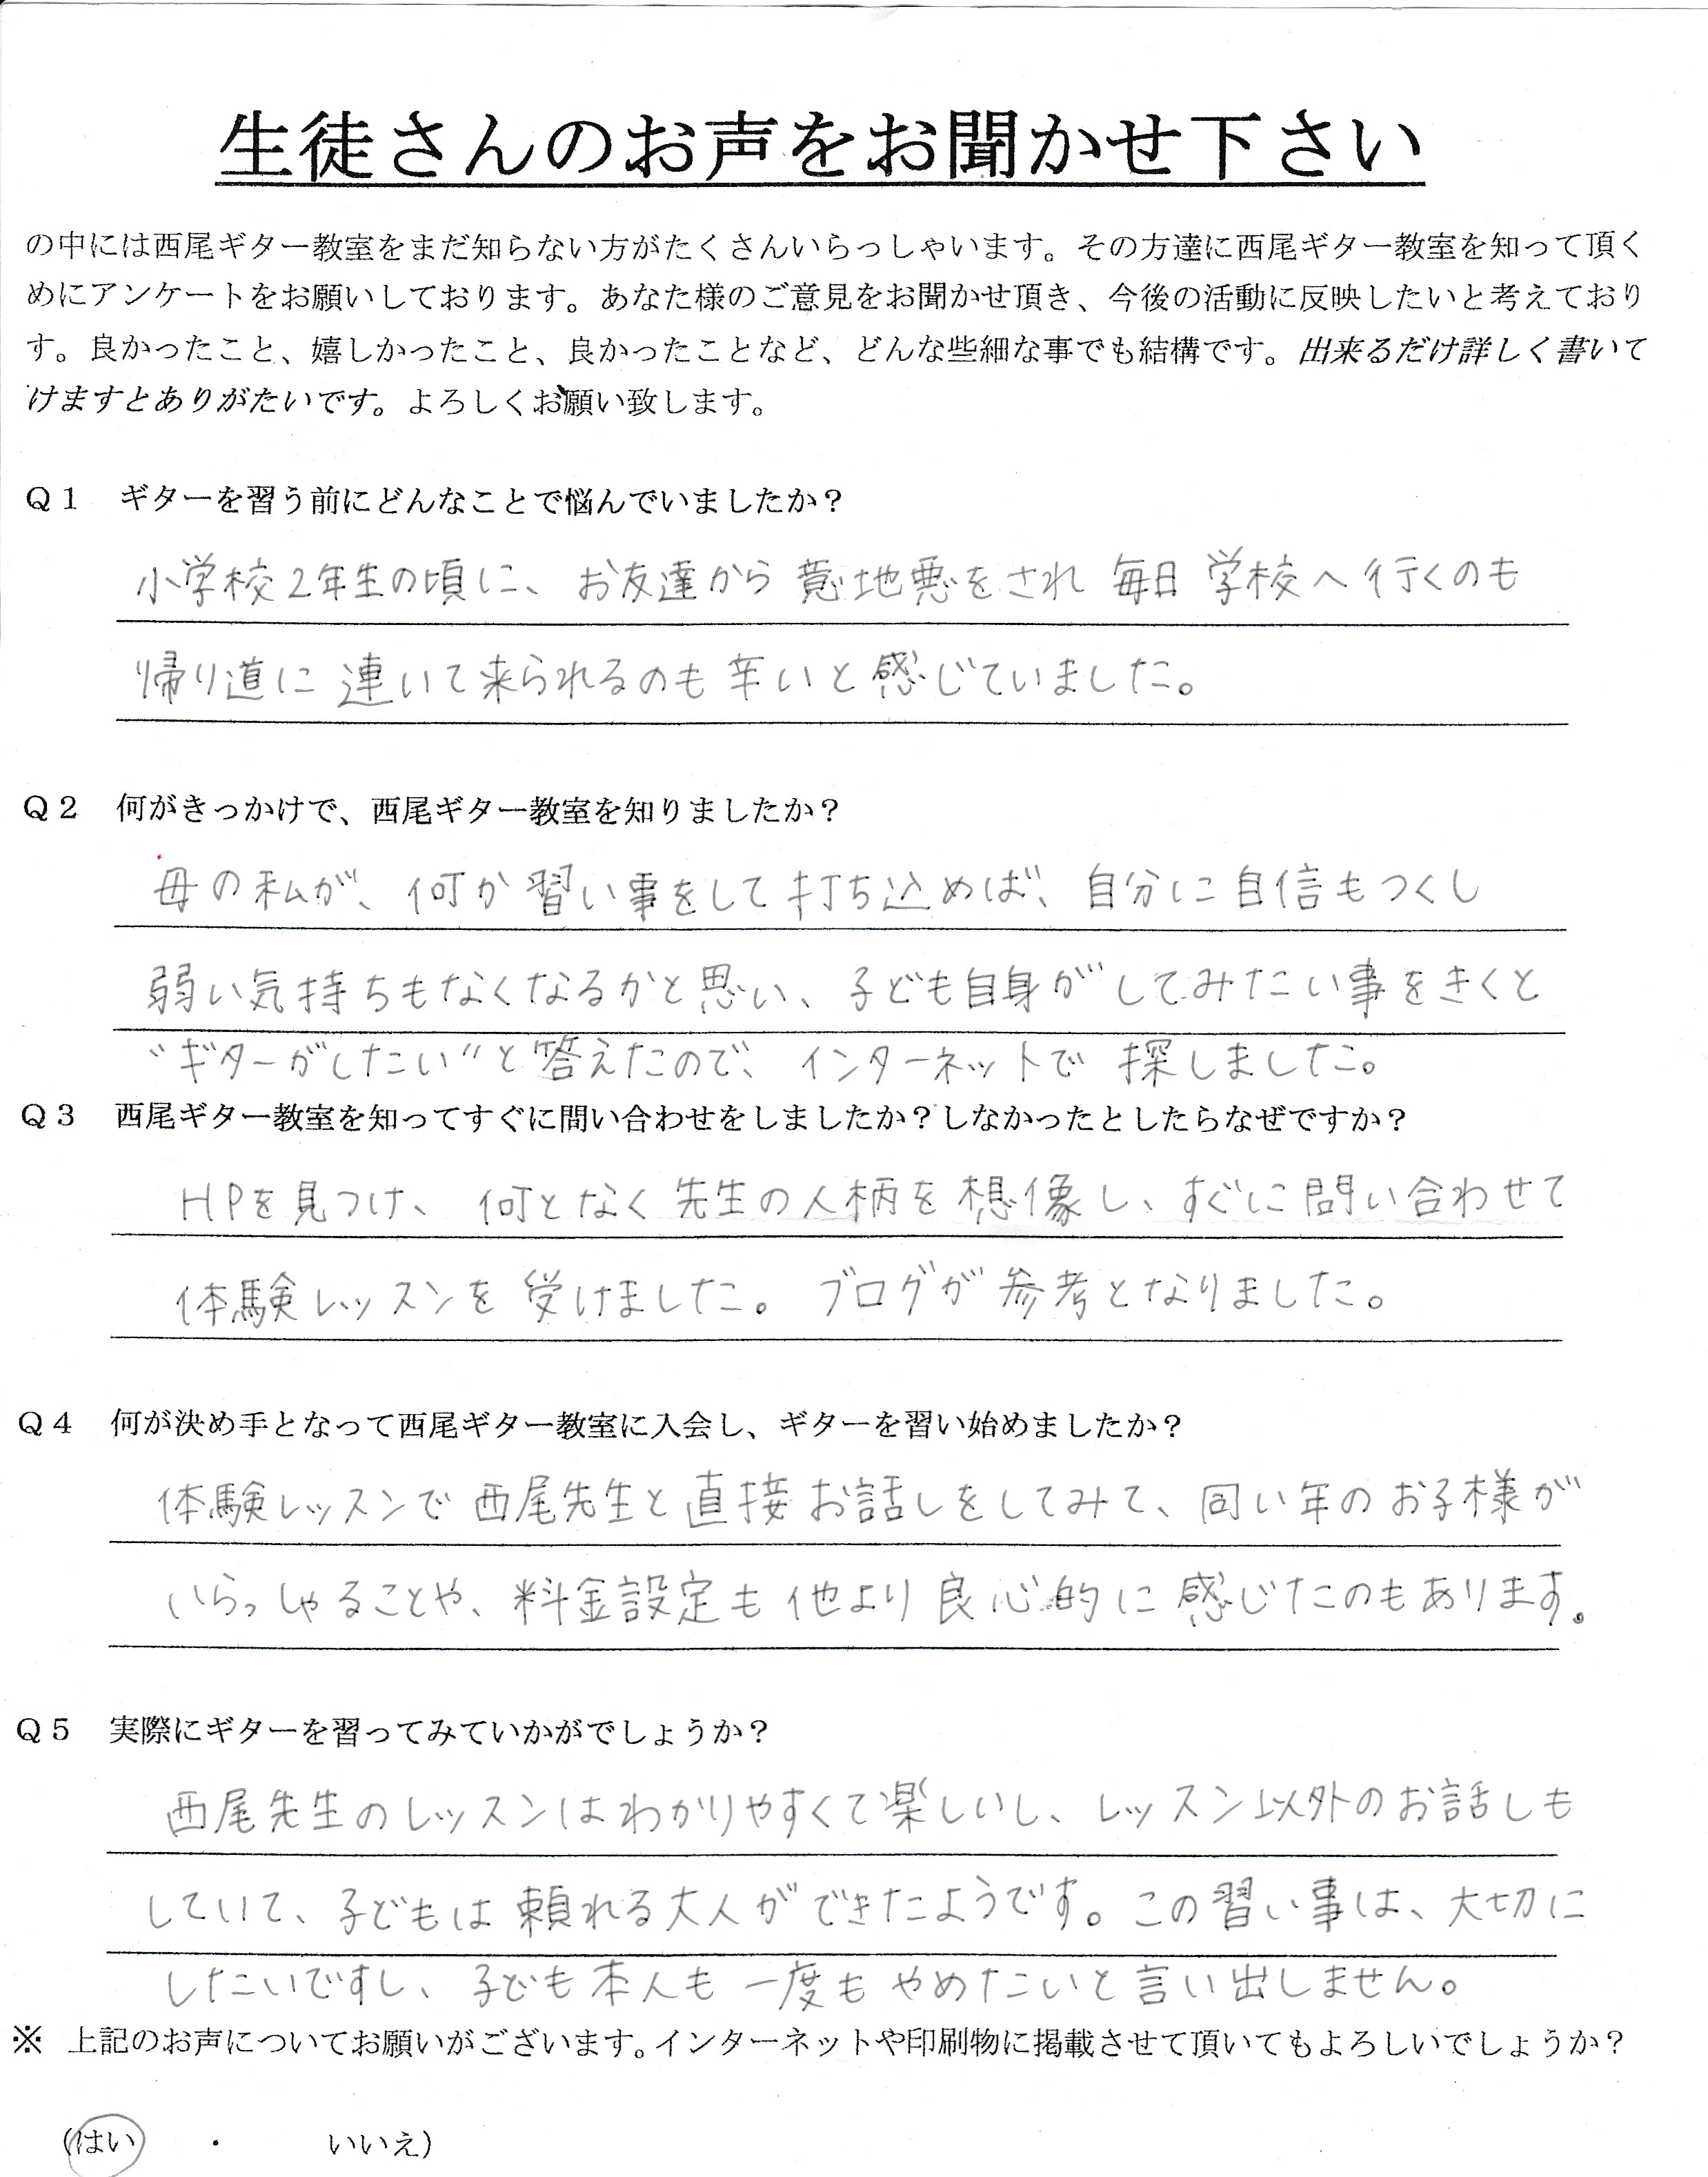 生徒さんのお声をお聞かせ下さい
の中には西尾ギター教室をまだ知らない方がたくさんいらっしゃいます。その方達に西尾ギター教室を知って頂く
めにアンケートをお願いしております。あなた様のご意見をお聞かせ頂き、今後の活動に反映したいと考えており
す。良かったこと、嬉しかったこと、良かったことなど、どんな些細な事でも結構です。出来るだけ詳しく書いて
けますとありがたいです。よろしくお願い致します。
Q1 ギターを習う前にどんなことで悩んでいましたか？
小学校2年生の頃に、お友達から意地悪をされ毎日学校へ行くのも
帰り道に連いて来られるのも辛いと感じていました。
Q2 何がきっかけで、西尾ギター教室を知りましたか？
母の私が、何か習い事をして打ち込めば、自分に自信もつくし
弱い気持ちもなくなるかと思い、子ども自身がしてみたい事をきくと
"ギターがしたい"と答えたので、インターネットで探しました。
Q3 西尾ギター教室を知ってすぐに問い合わせをしましたか？しなかったとしたらなぜですか？
HPを見つけ、何となく先生の人柄を想像し、すぐに問い合わせて
体験レッスンを受けました。ブログが参考となりました。
Q4 何が決め手となって西尾ギター教室に入会し、ギターを習い始めましたか？
体験レッスンで西尾先生と直接お話しをしてみて、同い年のお子様が
いらっしゃることや、料金設定も他より良心的に感じたのもあります。
Q5 実際にギターを習ってみていかがでしょうか？
西尾先生のレッスンはわかりやすくて楽しいし、レッスン以外のお話しも
していて、子どもは頼れる大人ができたようです。この習い事は、大切に
したいですし、子ども本人も一度もやめたいと言い出しません。
※ 上記のお声についてお願いがございます。インターネットや印刷物に掲載させて頂いてもよろしいでしょうか？
（はい ・ いいえ）